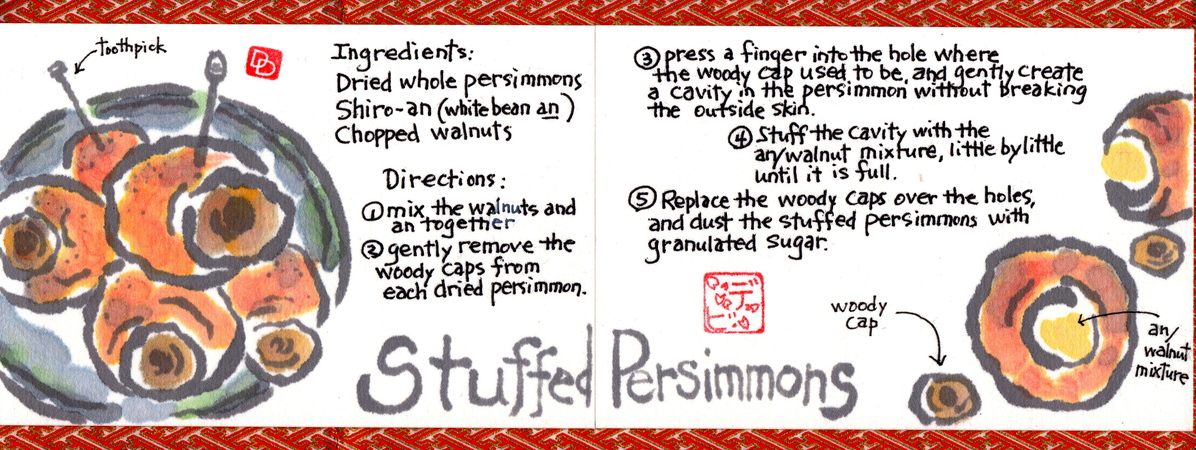 toothpick
DD
Ingredients:
Dried whole persimmons
Shiro-an (white bean an)
Chopped walnuts
Directions:
① mix the walnuts and
an together
② gently remove the
woody caps from
each dried persimmon.
③ press a finger into the hole where
the woody cap used to be, and gently create
a cavity in the persimmon without breaking
the outside skin.
④ Stuff the cavity with the
an/walnut mixture, little by little
until it is full.
⑤ Replace the woody caps over the holes,
and dust the stuffed persimmons with
granulated sugar.
woody
cap
an/
walnut
mixture
Stuffed Persimmons